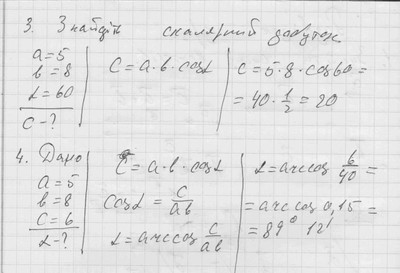 3. Знайдіть скалярний добуток
a=5
b=8
α=60
c-?
c=a·b·cosα
c=5·8·cos60=
=40·1/2=20
4. Дано
a=5
b=8
c=6
α-?
c=a·b·cosα
cosα=c/ab
α=arccos c/ab
α=arccos 6/40=
=arccos 0,15=
=89° 12'